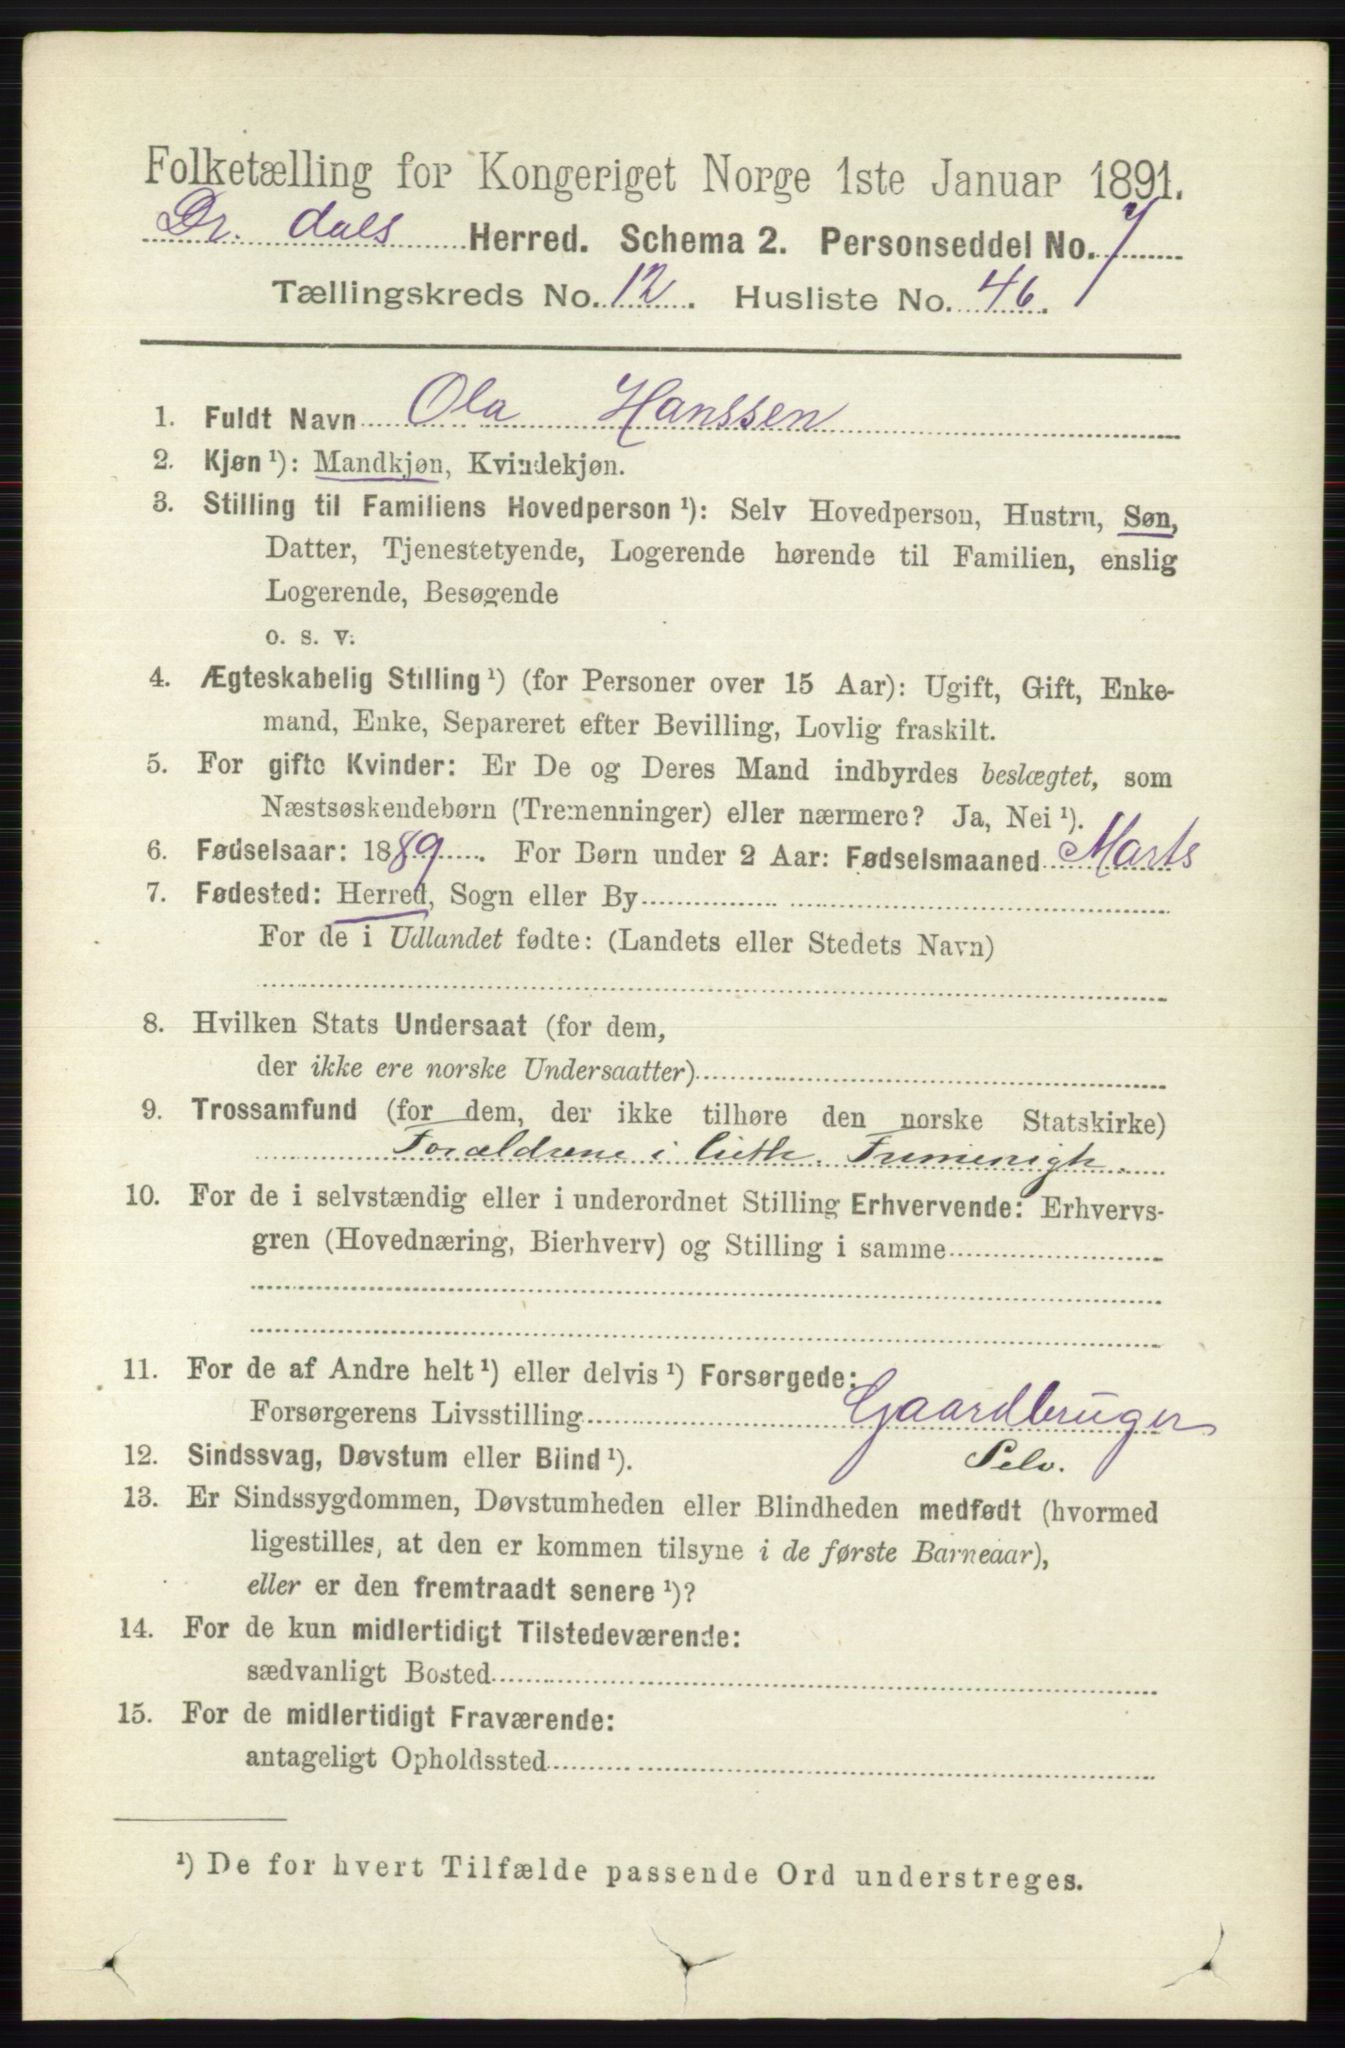 Folketælling for Kongeriget Norge 1ste Januar 1891.
Dr. dals Herred. Schema 2. Personseddel No. 7
Tællingskreds No. 12. Husliste No. 46.
1. Fuldt Navn Ola Hanssen
2. Kjøn ¹): Mandkjøn, Kvindekjøn.
3. Stilling til Familiens Hovedperson ¹): Selv Hovedperson, Hustru, Søn,
Datter, Tjenestetyende, Logerende hørende til Familien, enslig
Logerende, Besøgende
o. s. v.
4. Ægteskabelig Stilling ¹) (for Personer over 15 Aar): Ugift, Gift, Enke-
mand, Enke, Separeret efter Bevilling, Lovlig fraskilt.
5. For gifte Kvinder: Er De og Deres Mand indbyrdes beslægtet, som
Næstsøskendebørn (Tremenninger) eller nærmere? Ja, Nei ¹).
6. Fødselsaar: 1889. For Børn under 2 Aar: Fødselsmaaned Marts
7. Fødested: Herred, Sogn eller By
For de i Udlandet fødte: (Landets eller Stedets Navn)
8. Hvilken Stats Undersaat (for dem,
der ikke ere norske Undersaatter)
9. Trossamfund (for dem, der ikke tilhøre den norske Statskirke)
Forældrene i luth.
10. For de i selvstændig eller i underordnet Stilling Erhvervende: Erhvervs-
gren (Hovednæring, Bierhverv) og Stilling i samme
11. For de af Andre helt ¹) eller delvis ¹) Forsørgede:
Forsørgerens Livsstilling Gaardbruger
12. Sindssvag, Døvstum eller Blind ¹). Selv.
13. Er Sindssygdommen, Døvstumheden eller Blindheden medfødt (hvormed
ligestilles, at den er kommen tilsyne i de første Barneaar),
eller er den fremtraadt senere ¹)?
14. For de kun midlertidigt Tilstedeværende:
sædvanligt Bosted
15. For de midlertidigt Fraværende:
antageligt Opholdssted
¹) De for hvert Tilfælde passende Ord understreges.